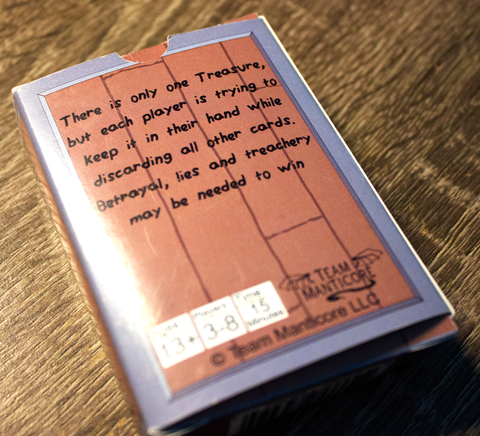 There is only one Treasure,
but each player is trying to
keep it in their hand while
discarding all other cards.
Betrayal, lies and treachery
may be needed to win
TEAM
MANTICORE
Players
13+ 3-8 15
Minutes
© Team Manticore LLC